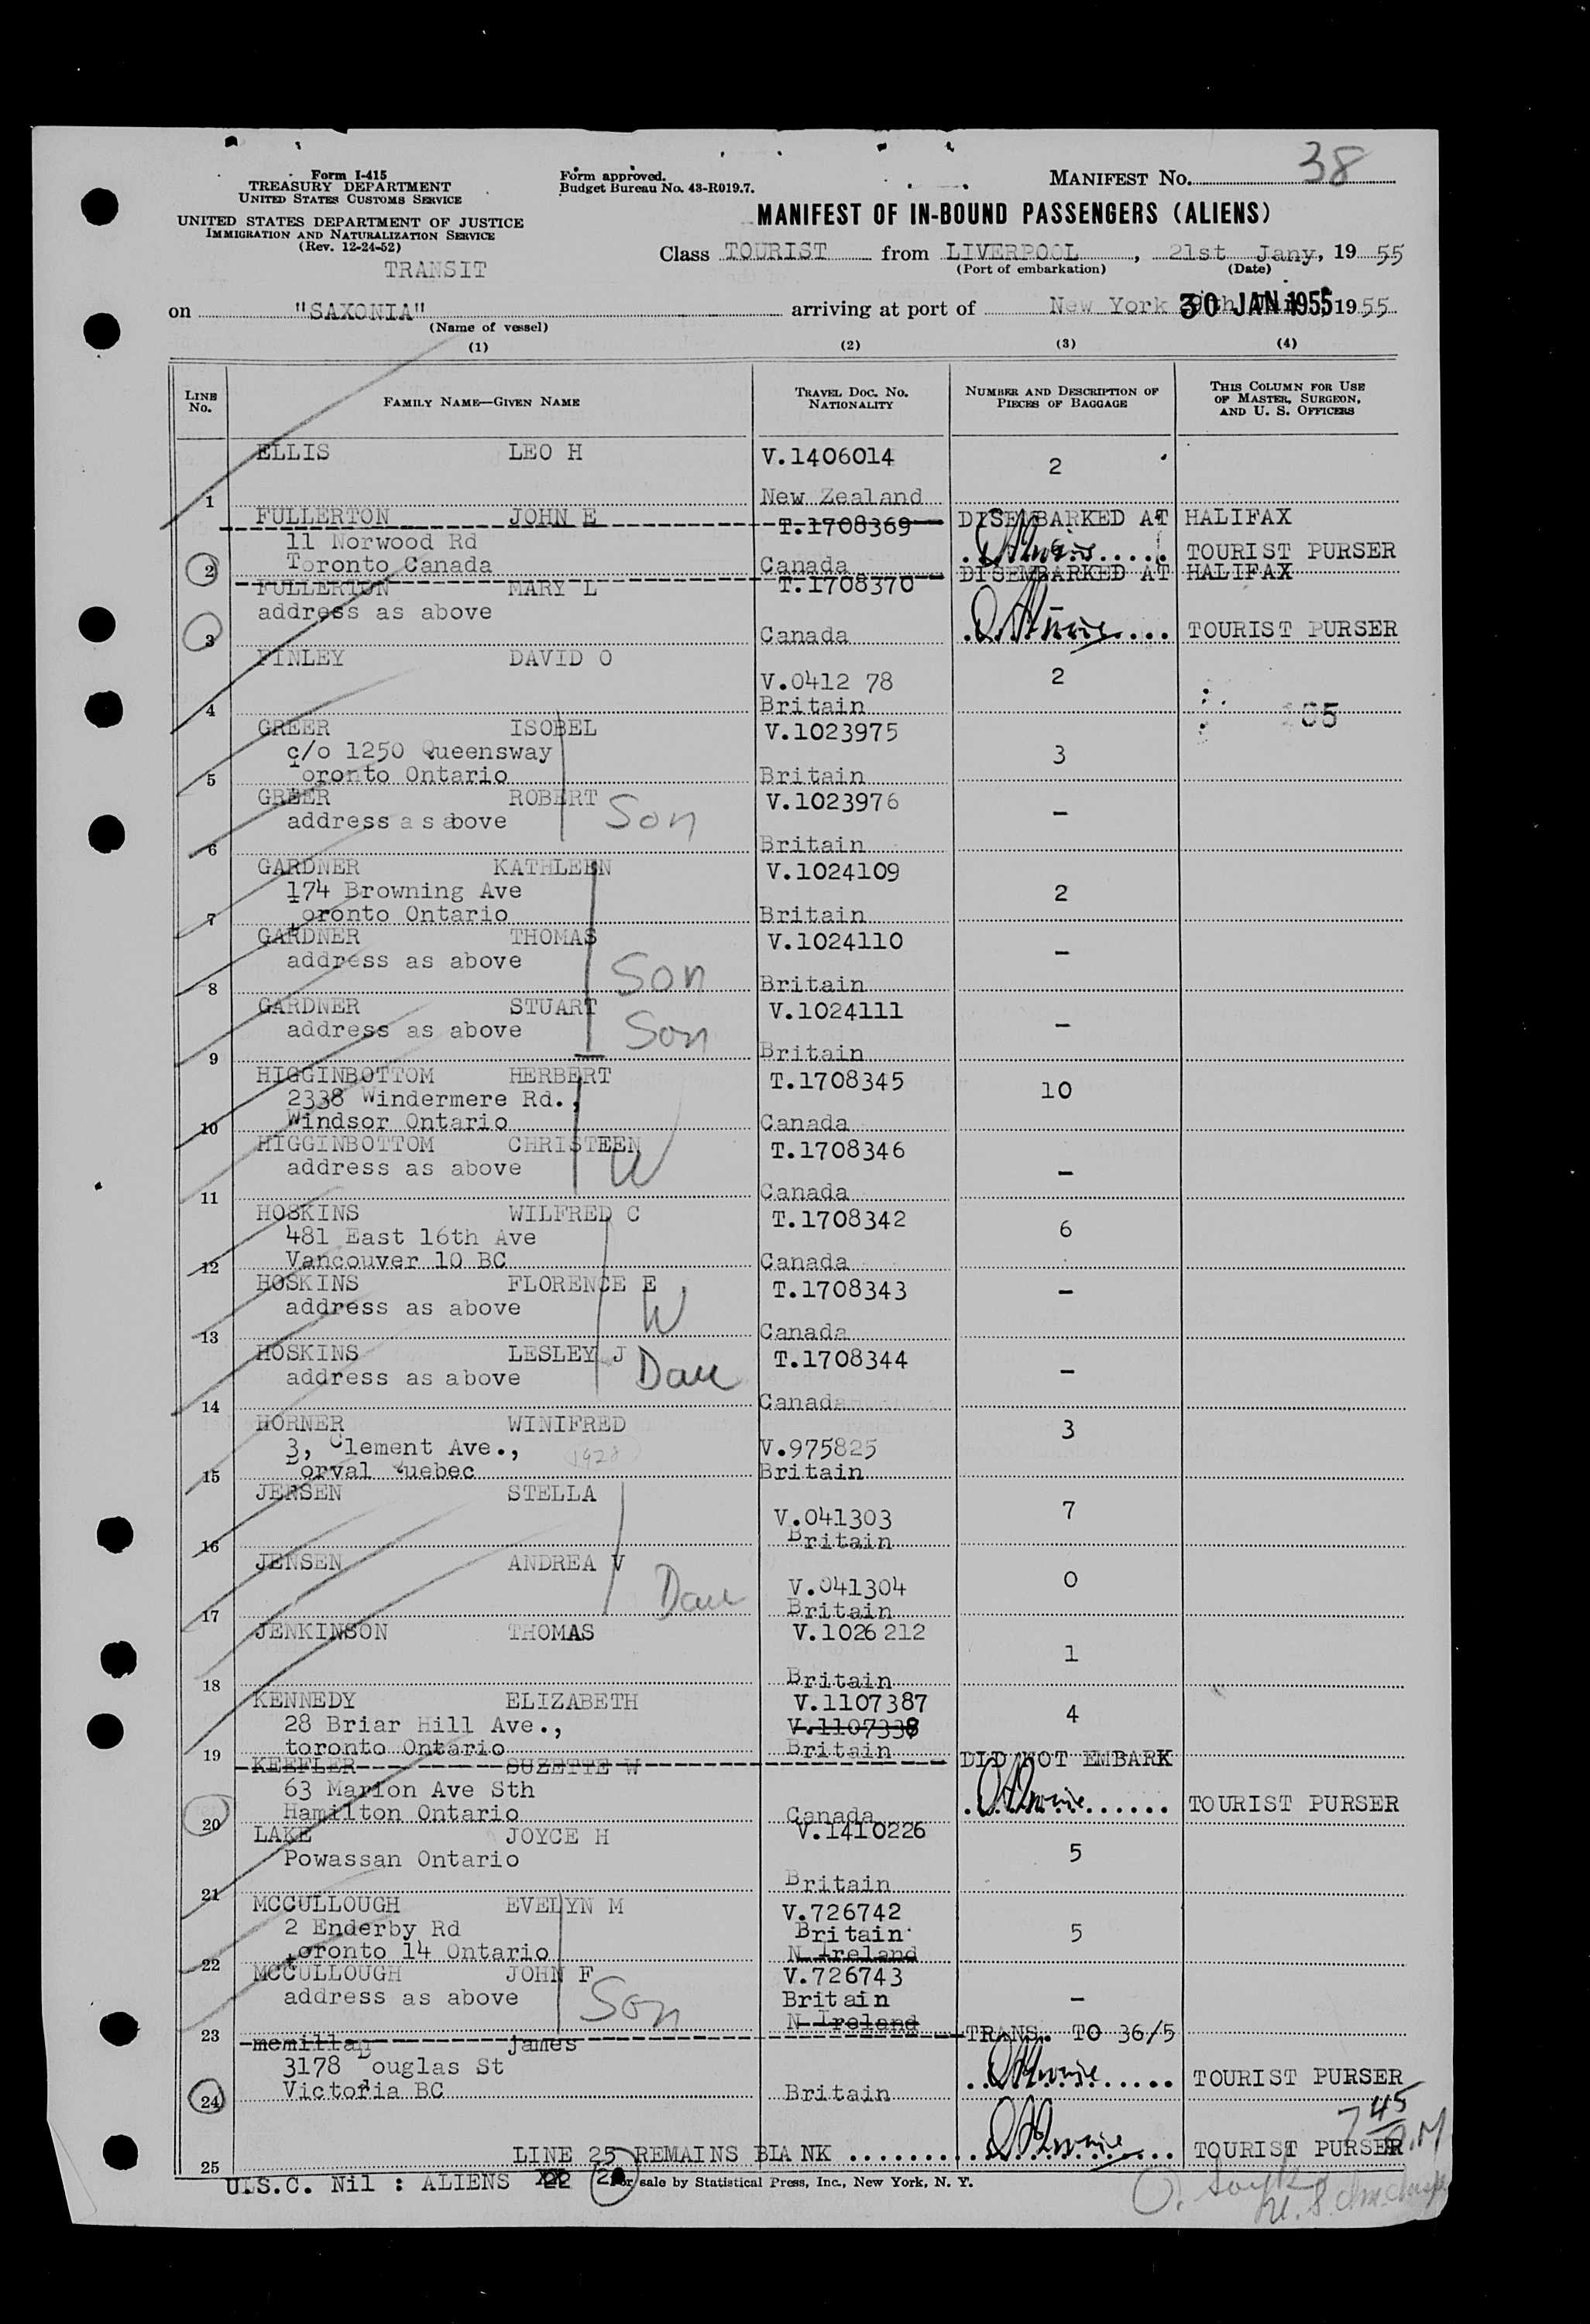 38
Form I-415
TREASURY DEPARTMENT
UNITED STATES CUSTOMS SERVICE
UNITED STATES DEPARTMENT OF JUSTICE
IMMIGRATION AND NATURALIZATION SERVICE
(Rev. 12-24-52)
TRANSIT
Form approved.
Budget Bureau No. 43-R019.7.
MANIFEST No.
MANIFEST OF IN-BOUND PASSENGERS (ALIENS)
Class TOURIST from LIVERPOOL, 21st Jany, 19 55
(Port of embarkation) (Date)
on "SAXONIA" arriving at port of New York 30 JAN 1955, 19 55
(Name of vessel)
(1) (2) (3) (4)
LINE No. FAMILY NAME—GIVEN NAME TRAVEL DOC. NO. NATIONALITY NUMBER AND DESCRIPTION OF PIECES OF BAGGAGE THIS COLUMN FOR USE OF MASTER, SURGEON, AND U. S. OFFICERS
ELLIS LEO H V.1406014 2
1 New Zealand
FULLERTON JOHN E T.1708369 DISEMBARKED AT HALIFAX
11 Norwood Rd TOURIST PURSER
2 Toronto Canada Canada
FULLERTON MARY L T.1708370 DISEMBARKED AT HALIFAX
address as above
3 Canada TOURIST PURSER
FINLEY DAVID O 2
V.0412 78
4 Britain
GREER ISOBEL V.1023975
c/o 1250 Queensway 3
5 Toronto Ontario Britain
GREER ROBERT V.1023976
address as above Son -
6 Britain
GARDNER KATHLEEN V.1024109
174 Browning Ave 2
7 Toronto Ontario Britain
GARDNER THOMAS V.1024110
address as above Son -
8 Britain
GARDNER STUART V.1024111
address as above Son -
9 Britain
HIGGINBOTTOM HERBERT T.1708345 10
2338 Windermere Rd.,
10 Windsor Ontario Canada
HIGGINBOTTOM CHRISTEEN T.1708346
address as above W -
11 Canada
HOSKINS WILFRED C T.1708342 6
481 East 16th Ave
12 Vancouver 10 BC Canada
HOSKINS FLORENCE E T.1708343 -
address as above W
13 Canada
HOSKINS LESLEY J T.1708344
address as above Dau -
14 Canada
HORNER WINIFRED 3
3, Clement Ave., V.975825
15 Dorval Quebec Britain
JENSEN STELLA 7
V.041303
16 Britain
JENSEN ANDREA V 0
Dau V.041304
17 Britain
JENKINSON THOMAS V.1026212
1
18 Britain
KENNEDY ELIZABETH V.1107387
28 Briar Hill Ave., V.1107338 4
19 toronto Ontario Britain
KEEFLER SUZETTE W DID NOT EMBARK
63 Marion Ave Sth
20 Hamilton Ontario Canada TOURIST PURSER
LAKE JOYCE H V.1410226
Powassan Ontario 5
21 Britain
MCCULLOUGH EVELYN M V.726742
2 Enderby Rd Britain 5
22 toronto 14 Ontario N Ireland
MCCULLOUGH JOHN F V.726743
address as above Son Britain -
23 N Ireland
mcmillan james TRANS. TO 36/5
3178 Douglas St TOURIST PURSER
24 Victoria BC Britain
7 45 A.M
LINE 25 REMAINS BLANK TOURIST PURSER
25
U.S.C. Nil : ALIENS 22
For sale by Statistical Press, Inc., New York, N. Y.